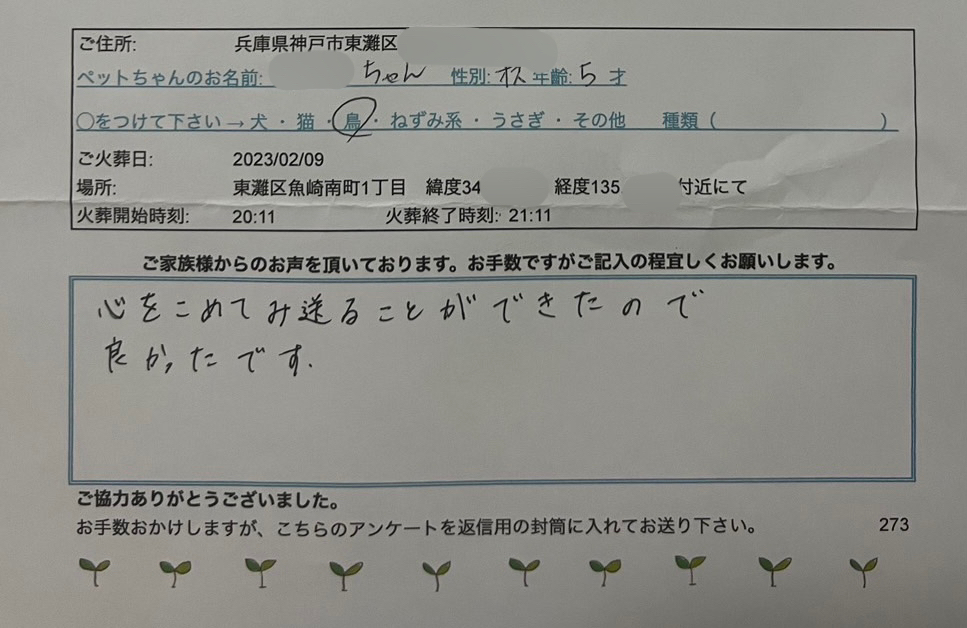 ご住所: 兵庫県神戸市東灘区
ペットちゃんのお名前: ちゃん 性別: オス 年齢: 5 才
○をつけて下さい→犬・猫・鳥・ねずみ系・うさぎ・その他 種類( )
ご火葬日: 2023/02/09
場所: 東灘区魚崎南町1丁目 緯度34 経度135 付近にて
火葬開始時刻: 20:11 火葬終了時刻: 21:11
ご家族様からのお声を頂いております。お手数ですがご記入の程宜しくお願いします。
心をこめてみ送ることができたので
良かったです.
ご協力ありがとうございました。
お手数おかけしますが、こちらのアンケートを返信用の封筒に入れてお送り下さい。 273